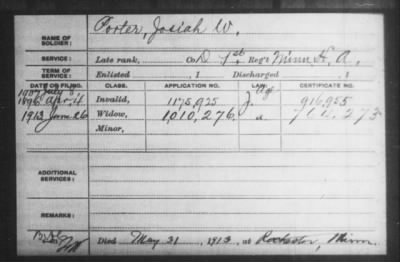 NAME OF SOLDIER: Porter, Josiah W.
SERVICE: Late rank, Co. D 1st Reg't Minn. H. A.
TERM OF SERVICE: Enlisted , 1 Discharged , 1
DATE OF FILING. CLASS. APPLICATION NO. LAW. CERTIFICATE NO.
1907 July
1896 Apr. 4 Invalid, 1175,925 916,955
1913 June 26 Widow, 1,010,276
Minor,
ADDITIONAL SERVICES:
REMARKS:
Died May 31, 1913, at Rochester, Minn.